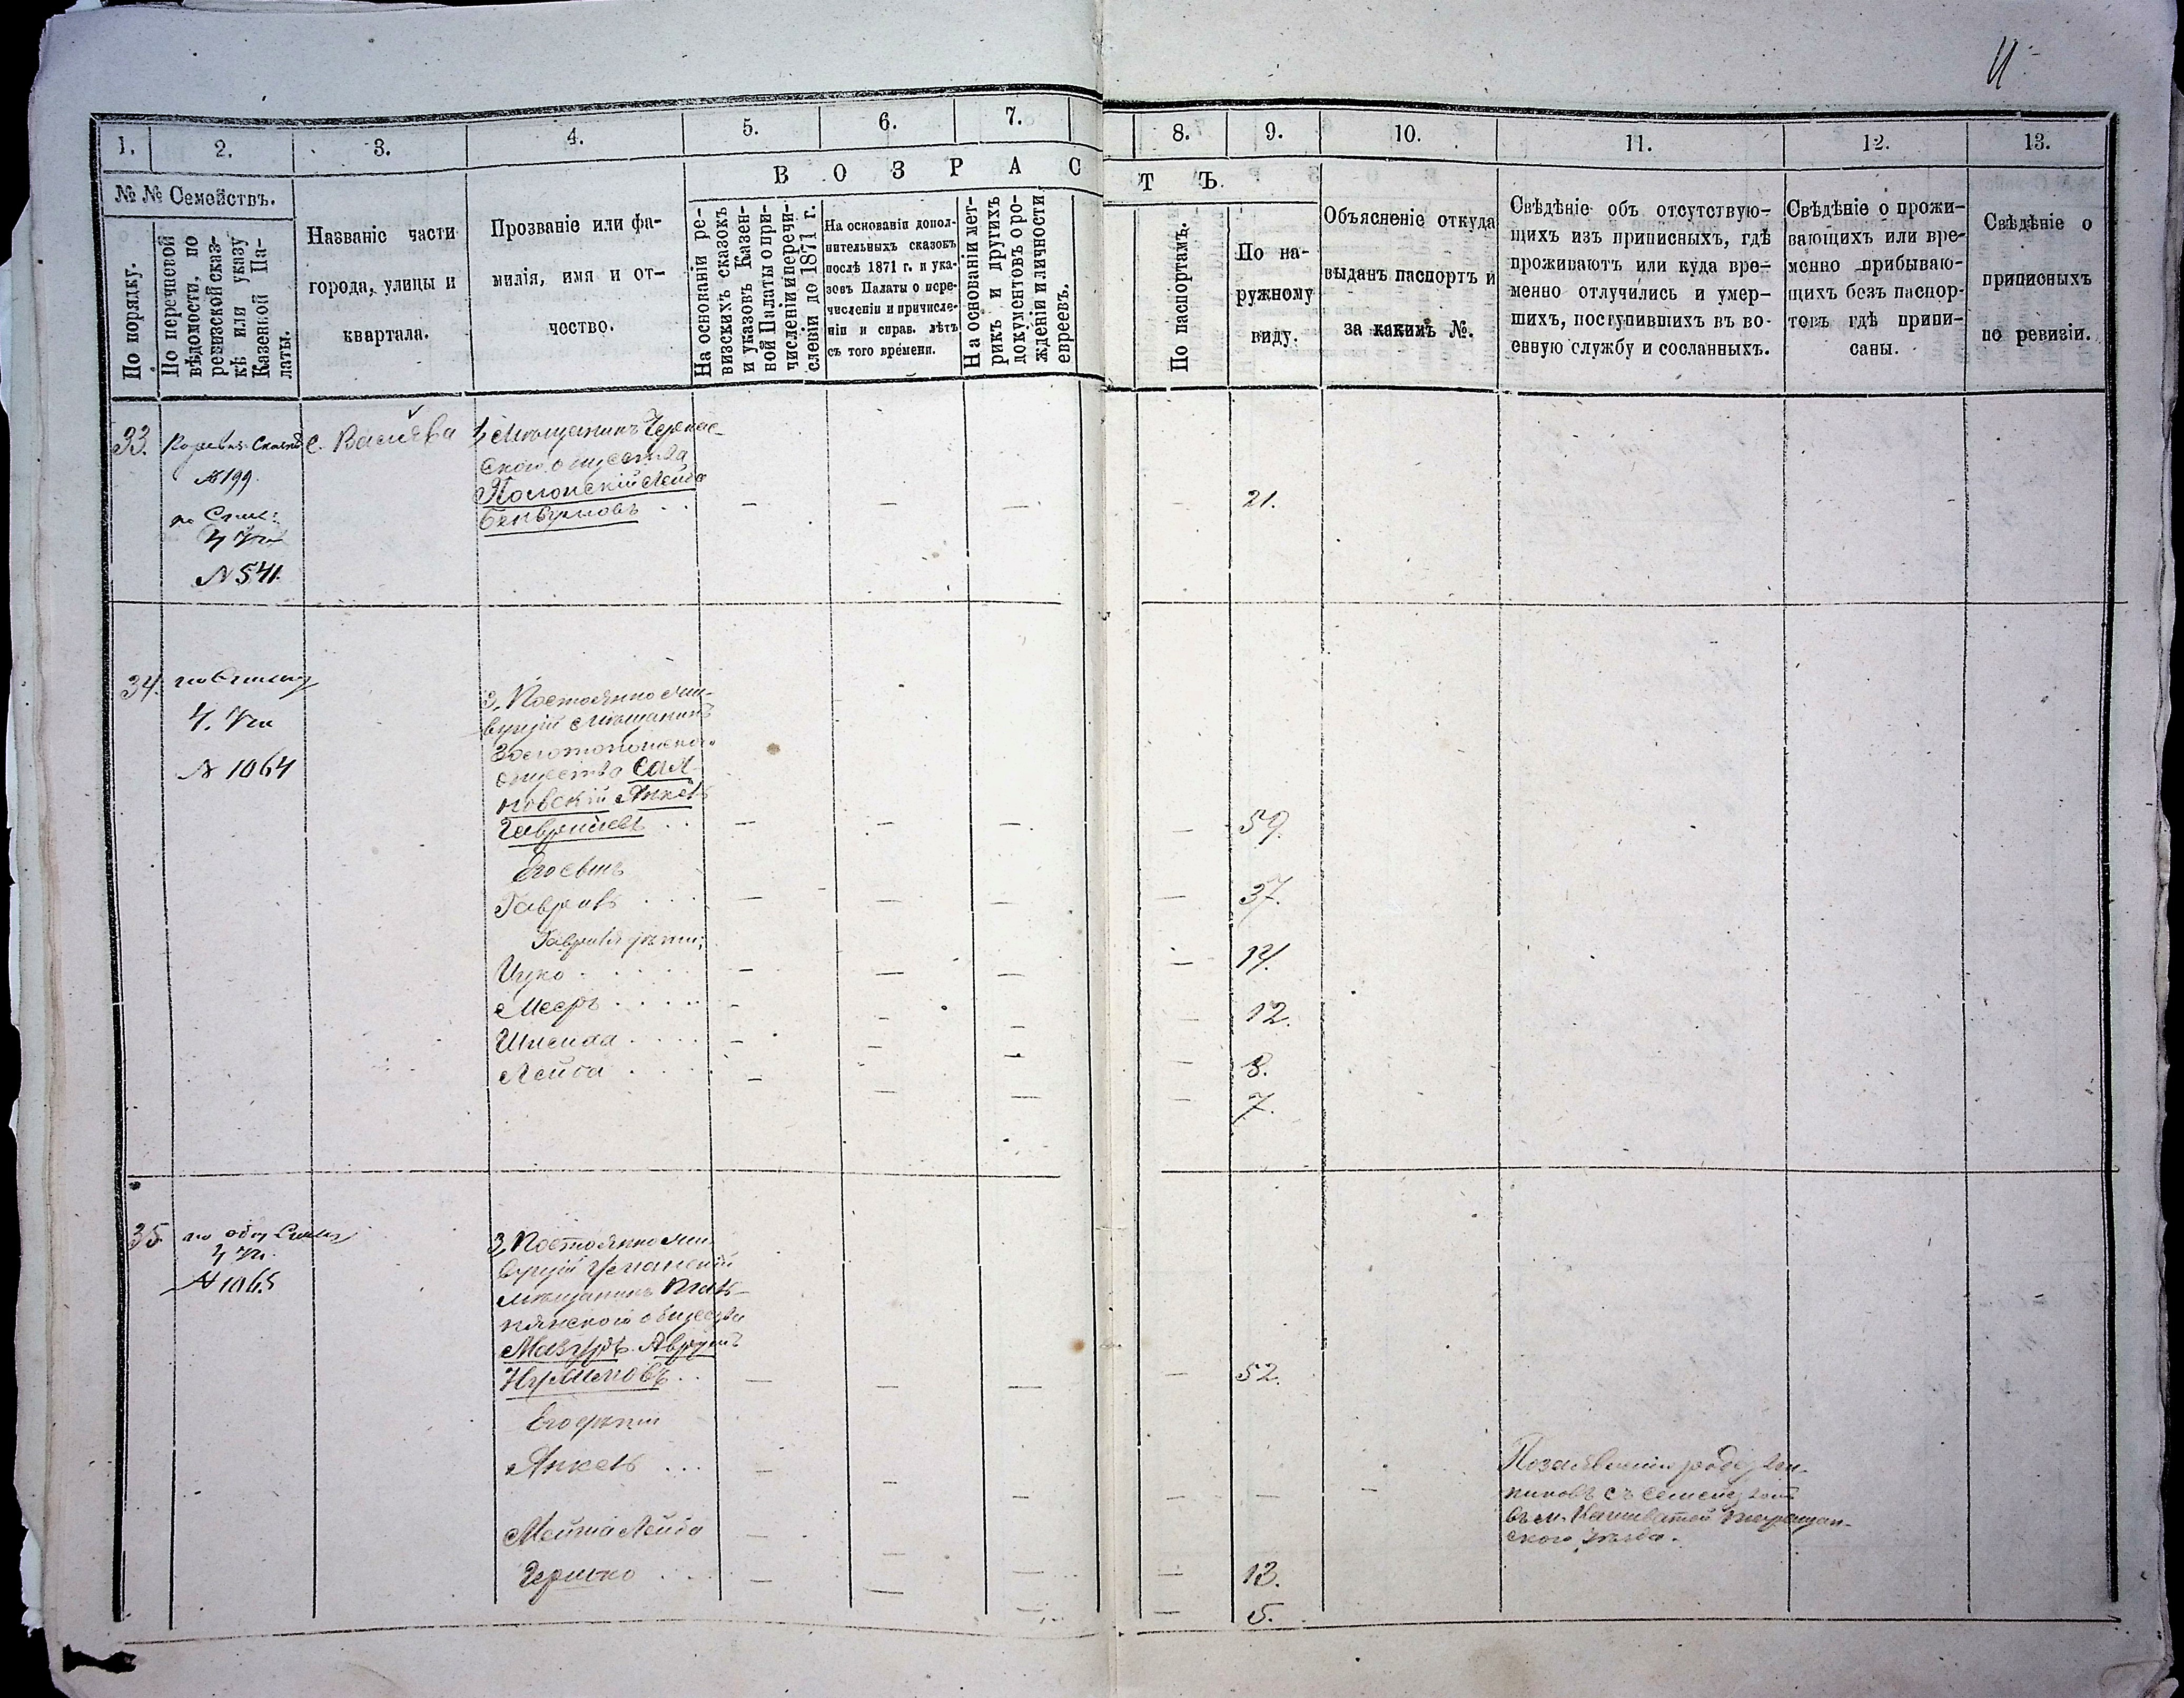 11
1. 2. 3. 4. 5. 6. 7. 8. 9. 10. 11. 12. 13.
№ № Семействъ.
По порядку.
По перечневой
вѣдомости, по
ревизской сказ-
кѣ или указу
Казенной Па-
латы.
Названіе части
города, улицы и
квартала.
Прозваніе или фа-
милія, имя и от-
чество.
В О З Р А С Т Ъ.
На основаніи ре-
визскихъ сказокъ
и указовъ Казен-
ной Палаты о при-
численіи и перечи-
сленіи до 1871 г.
На основаніи допол-
нительныхъ сказокъ
послѣ 1871 г. и ука-
зовъ Палаты о пере-
численіи и причисле-
ніи и справ. лѣтъ
съ того времени.
На основаніи мет-
рикъ и другихъ
документовъ о ро-
жденіи и личности
евреевъ.
По паспортамъ.
По на-
ружному
виду.
Объясненіе откуда
выданъ паспортъ и
за какимъ №.
Свѣдѣніе объ отсутствую-
щихъ изъ приписныхъ, гдѣ
проживаютъ или куда вре-
менно отлучились и умер-
шихъ, поступившихъ въ во-
енную службу и сосланныхъ.
Свѣдѣніе о прожи-
вающихъ или вре-
менно прибываю-
щихъ безъ паспор-
товъ гдѣ припи-
саны.
Свѣдѣніе о
приписныхъ
по ревизіи.
33.
№ 199.
по
4 Уч
№ 541.
с.
Мѣщанинъ Черкас-
скаго общества
Полонскій Лейба
— — — — 21.
34.
по Списку
4. Уч
№ 1064
3, Постоянно жи-
вущій мѣщанинъ
Золотоношска.
общества Сал-
новскій Янкель
Гавриловъ — — — — 59.
Его сынъ
Гаврилъ — — — — 37.
Гаврила дѣти:
Ицко — — — — 14.
Мееръ — — — — 12.
Шлейма — — — — 8.
Лейба — — — — 7.
35.
по Списку
4 Уч.
№ 1065
3, Постоянно жи-
вущій Уманскій
мѣщанинъ
общества
Мазуръ Аврумъ
— — — — 52.
Его дѣти
Янкель — — — — — —
По заявленію
съ семействомъ
въ м.
скаго уѣзда.
Лейба — — — — 13.
Гершко — — — — 5.